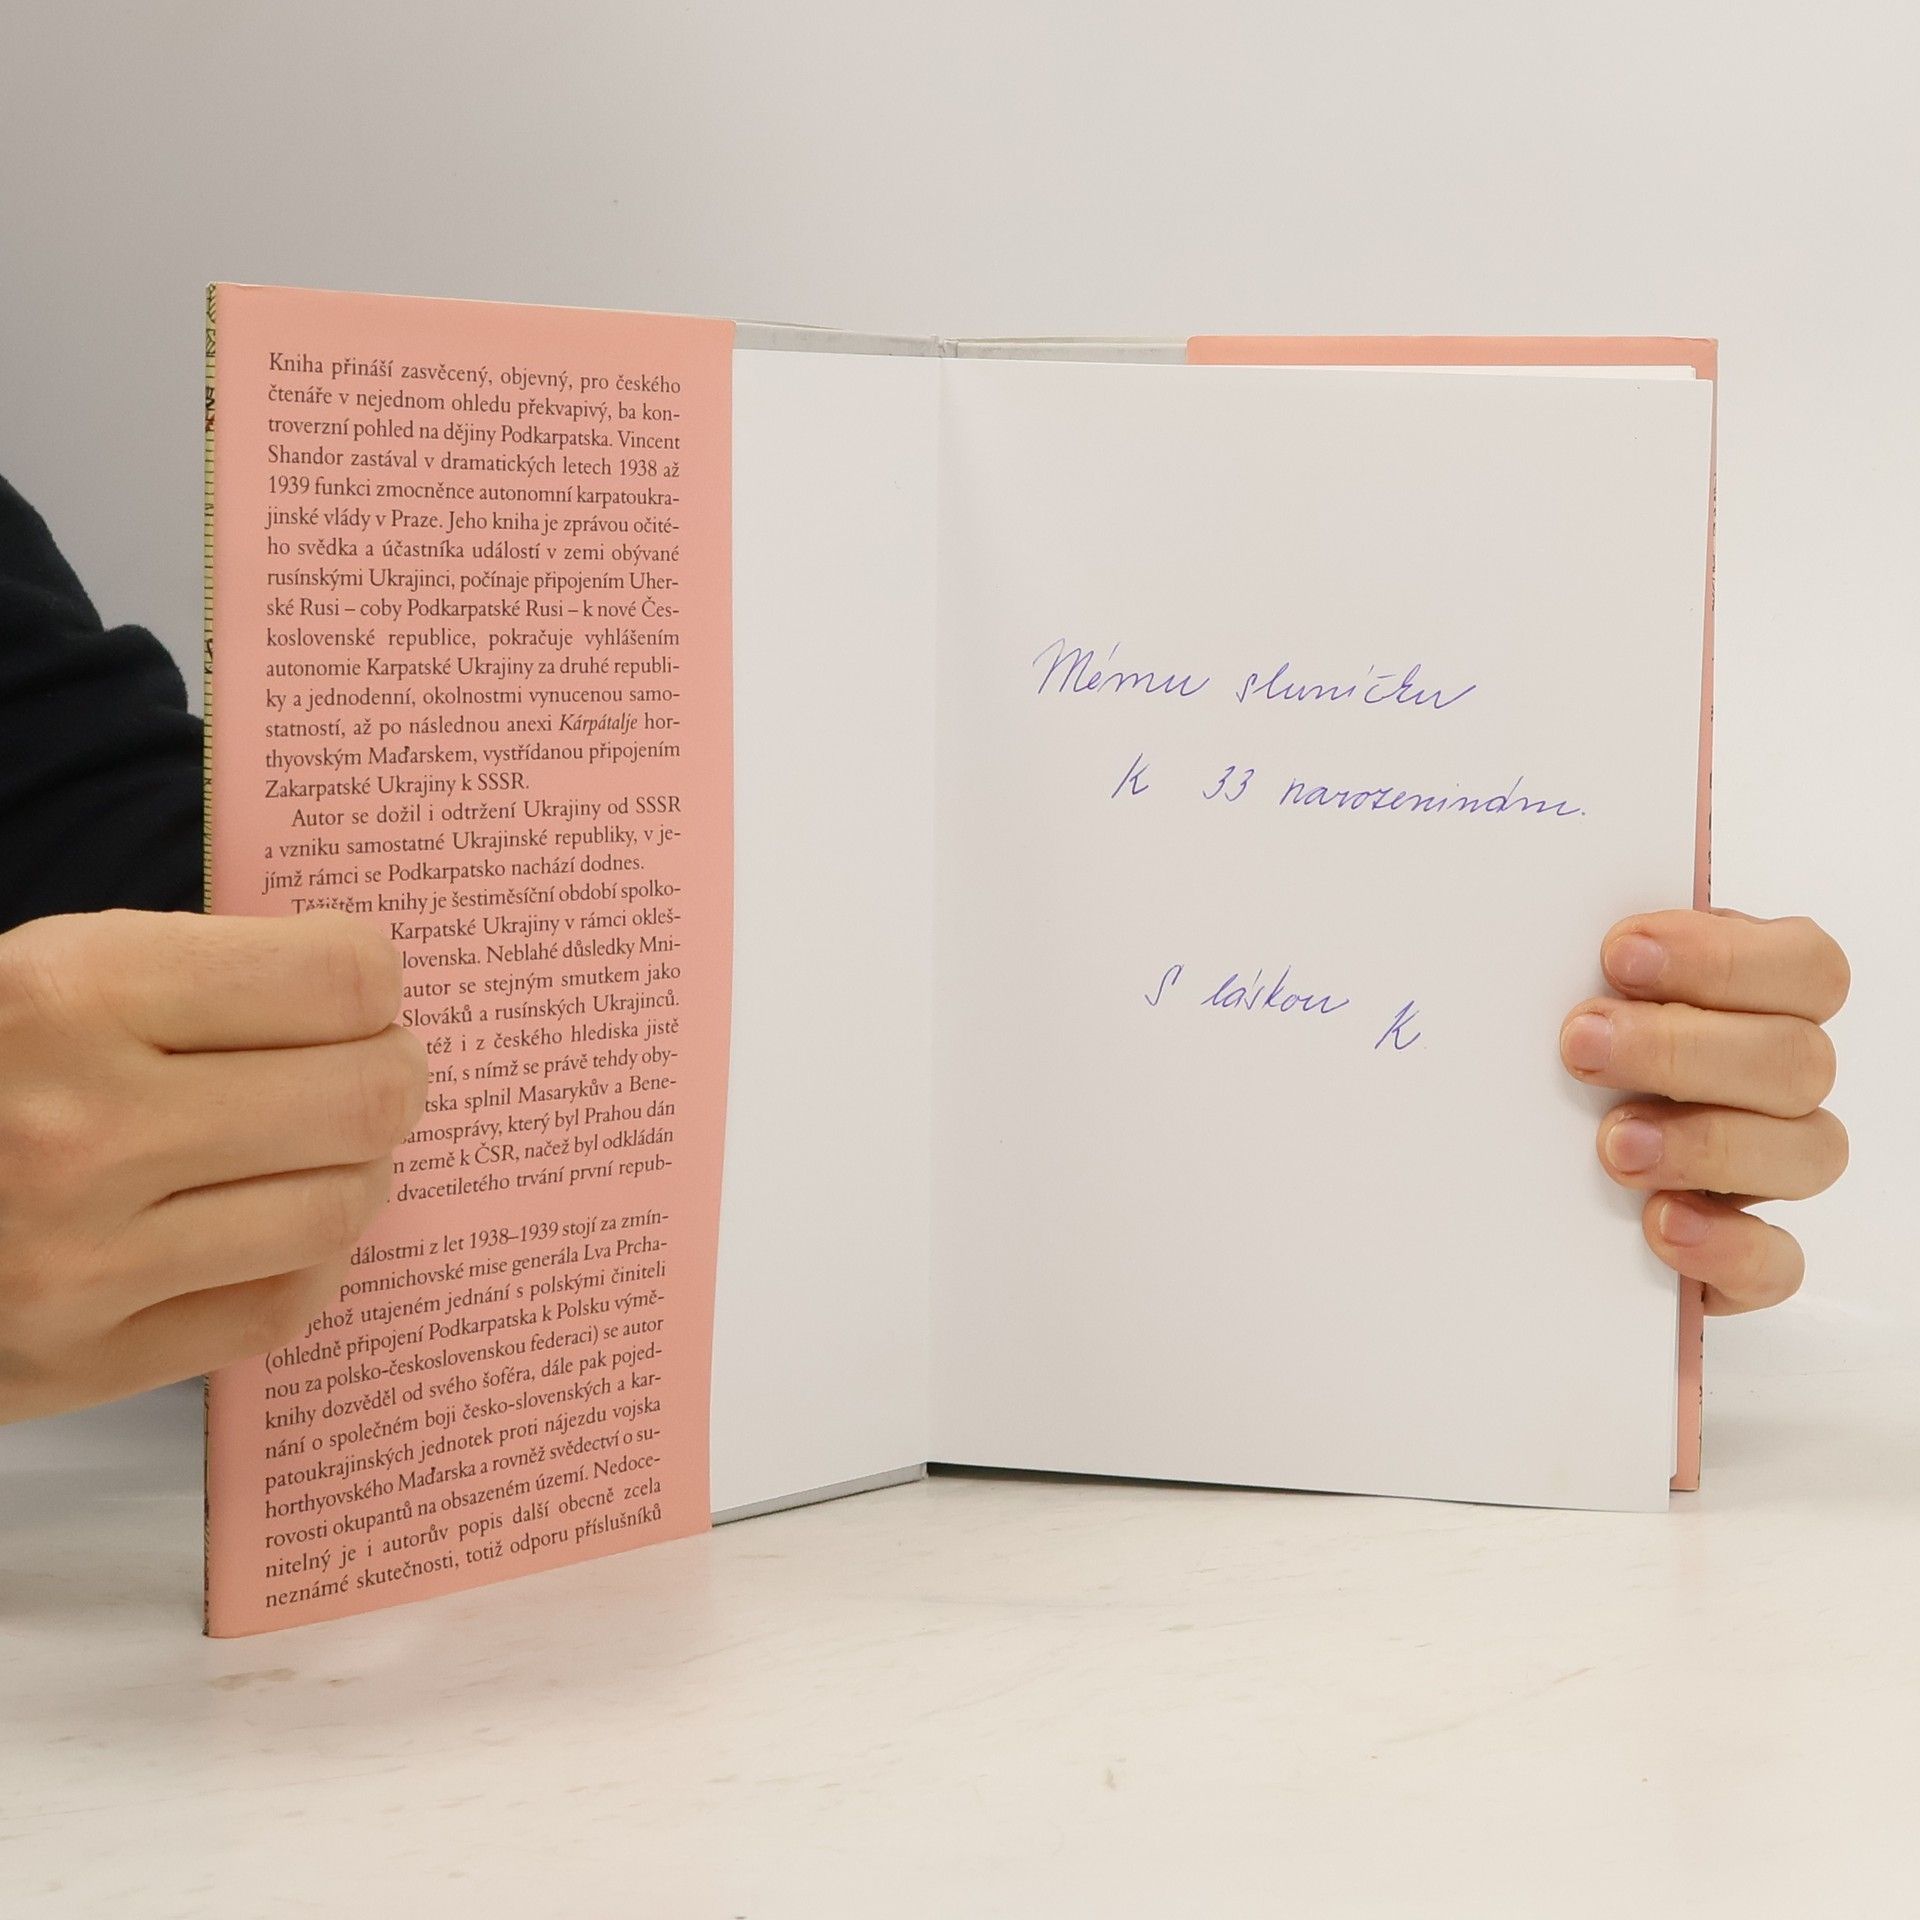 Kniha přináší zasvěcený, objevný, pro českého
čtenáře v nejednom ohledu překvapivý, ba kon-
troverzní pohled na dějiny Podkarpatska. Vincent
Shandor zastával v dramatických letech 1938 až
1939 funkci zmocněnce autonomní karpatoukra-
jinské vlády v Praze. Jeho kniha je zprávou očité-
ho svědka a účastníka událostí v zemi obývané
rusínskými Ukrajinci, počínaje připojením Uher-
ské Rusi – coby Podkarpatské Rusi – k nové Čes-
koslovenské republice, pokračuje vyhlášením
autonomie Karpatské Ukrajiny za druhé republi-
ky a jednodenní, okolnostmi vynucenou samo-
statností, až po následnou anexi Kárpátalje hor-
thyovským Maďarskem, vystřídanou připojením
Zakarpatské Ukrajiny k SSSR.
Autor se dožil i odtržení Ukrajiny od SSSR
a vzniku samostatné Ukrajinské republiky, v je-
jímž rámci se Podkarpatsko nachází dodnes.
Těžištěm knihy je šestiměsíční období spolko-
Karpatské Ukrajiny v rámci okleš-
lovenska. Neblahé důsledky Mni-
autor se stejným smutkem jako
Slováků a rusínských Ukrajinců.
též i z českého hlediska jistě
ení, s nímž se právě tehdy oby-
tska splnil Masarykův a Bene-
samosprávy, který byl Prahou dán
n země k ČSR, načež byl odkládán
dvacetiletého trvání první repub-
dálostmi z let 1938–1939 stojí za zmín-
pomnichovské mise generála Lva Prcha-
jehož utajeném jednání s polskými činiteli
(ohledně připojení Podkarpatska k Polsku výmě-
nou za polsko-československou federaci) se autor
knihy dozvěděl od svého šoféra, dále pak pojed-
nání o společném boji česko-slovenských a kar-
patoukrajinských jednotek proti nájezdu vojska
horthyovského Maďarska a rovněž svědectví o su-
rovosti okupantů na obsazeném území. Nedoce-
nitelný je i autorův popis další obecně zcela
neznámé skutečnosti, totiž odporu příslušníků
Mému sluníčku
K 33 narozeninám.
S láskou
K.